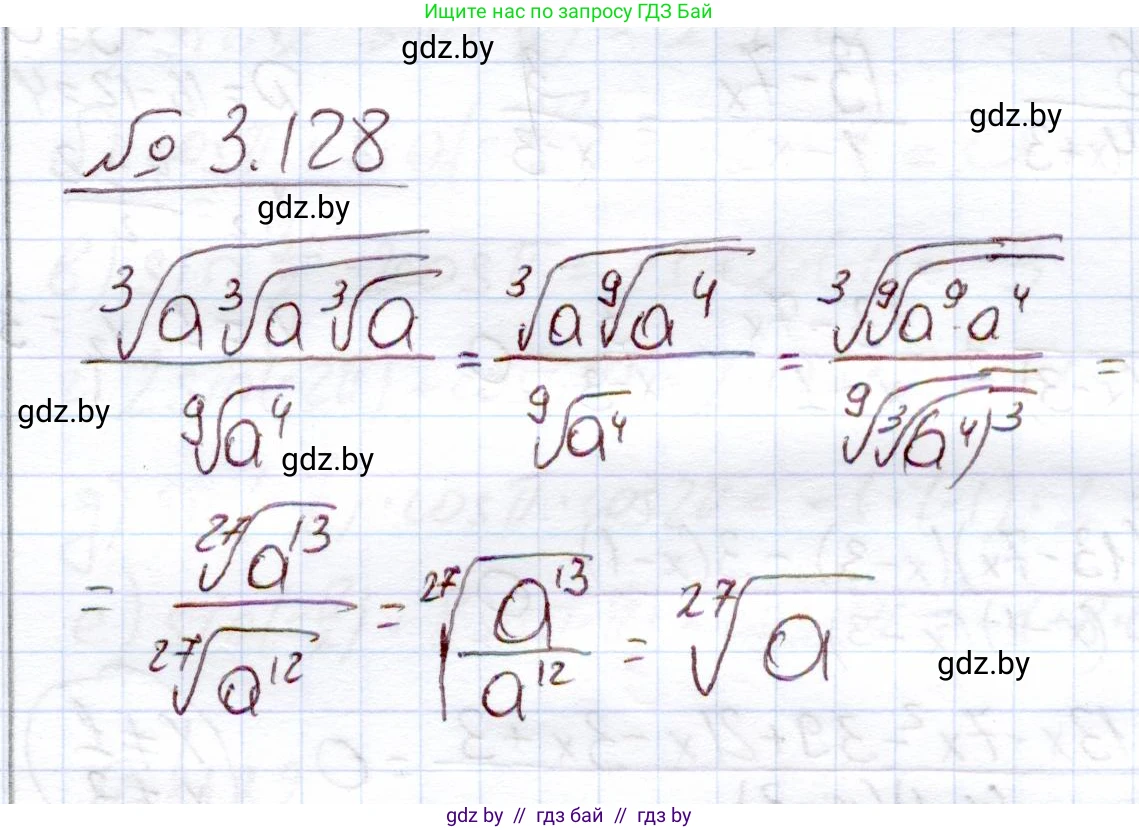 Ищите нас по запросу ГДЗ Бай
gdz.by
gdz.by
№ 3.128
gdz.by
∛(a∛(a∛a)) / ⁹√(a⁴) = ∛(a⁹√(a⁴)) / ⁹√(a⁴) = ∛(⁹√(a⁹·a⁴)) / ⁹√(∛((a⁴)³)) =
gdz.by
gdz.by
= ²⁷√(a¹³) / ²⁷√(a¹²) = ²⁷√(a¹³/a¹²) = ²⁷√a
gdz.by
gdz.by // гдз бай // гдз by